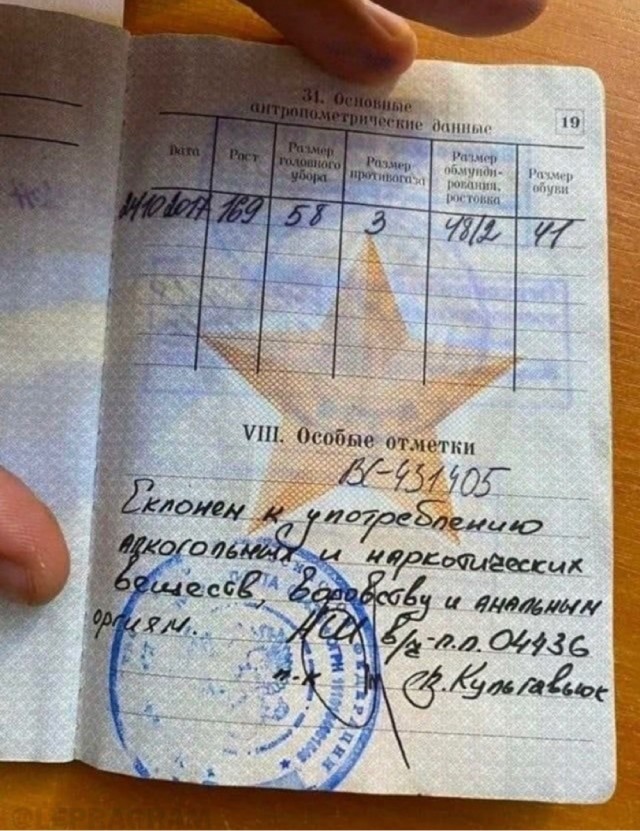 31. Основные
антропометрические данные
19
Дата Рост Размер головного убора Размер противогаза Размер обмунди-рования, ростовка Размер обуви
24.10.2017 169 58 3 48/2 41
VIII. Особые отметки
ВС-431405
Склонен к употреблению
алкогольных и наркотических
веществ, воровству и анальным
оргиям. в/ч-п.п. 04436
п-к Кульгавьюк